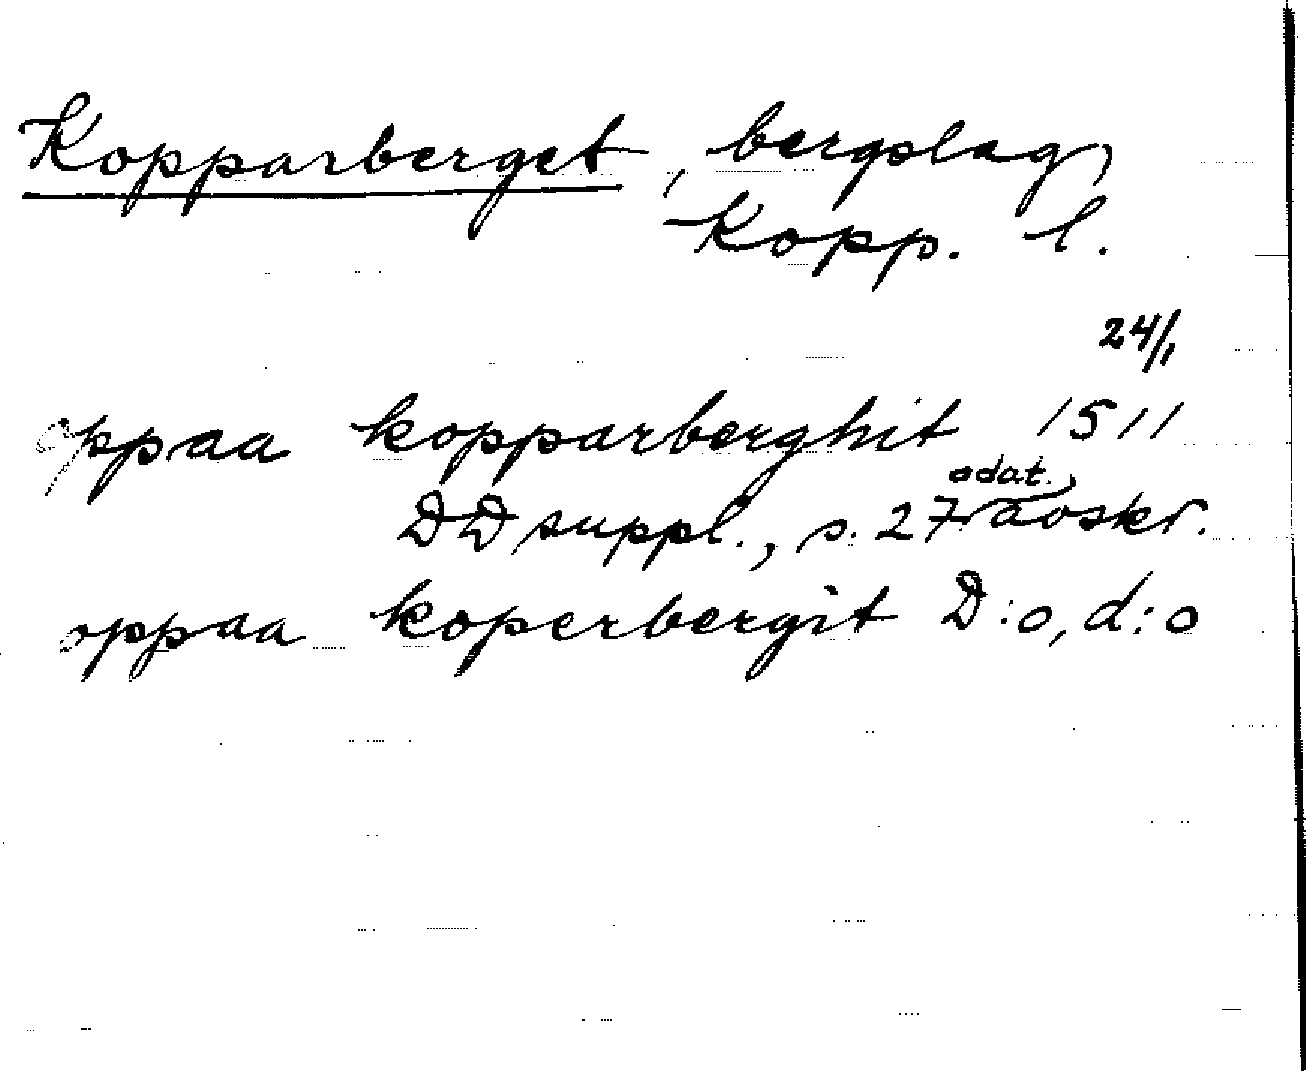 Kopparberget, bergslag,
Kopp. l.
24/1
oppaa kopparberghit 1511
odat.,
DD suppl., s. 27 avskr.
oppaa koperbergit D:o, d:o